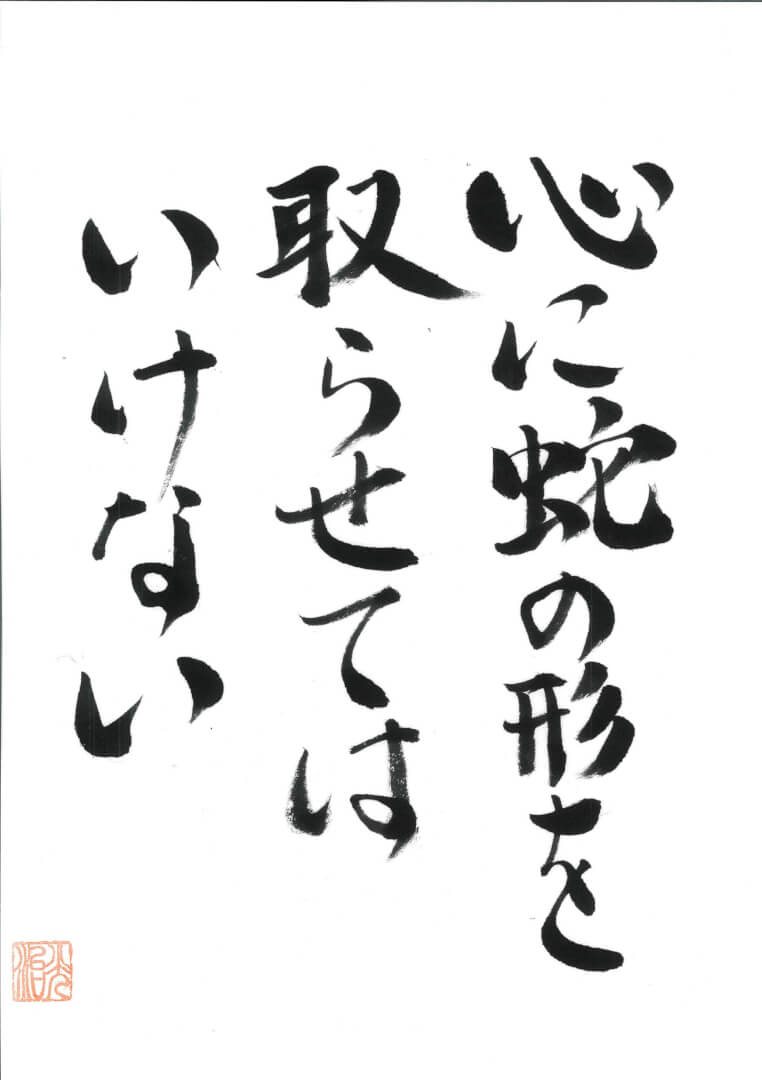 心に蛇の形を
取らせては
いけない